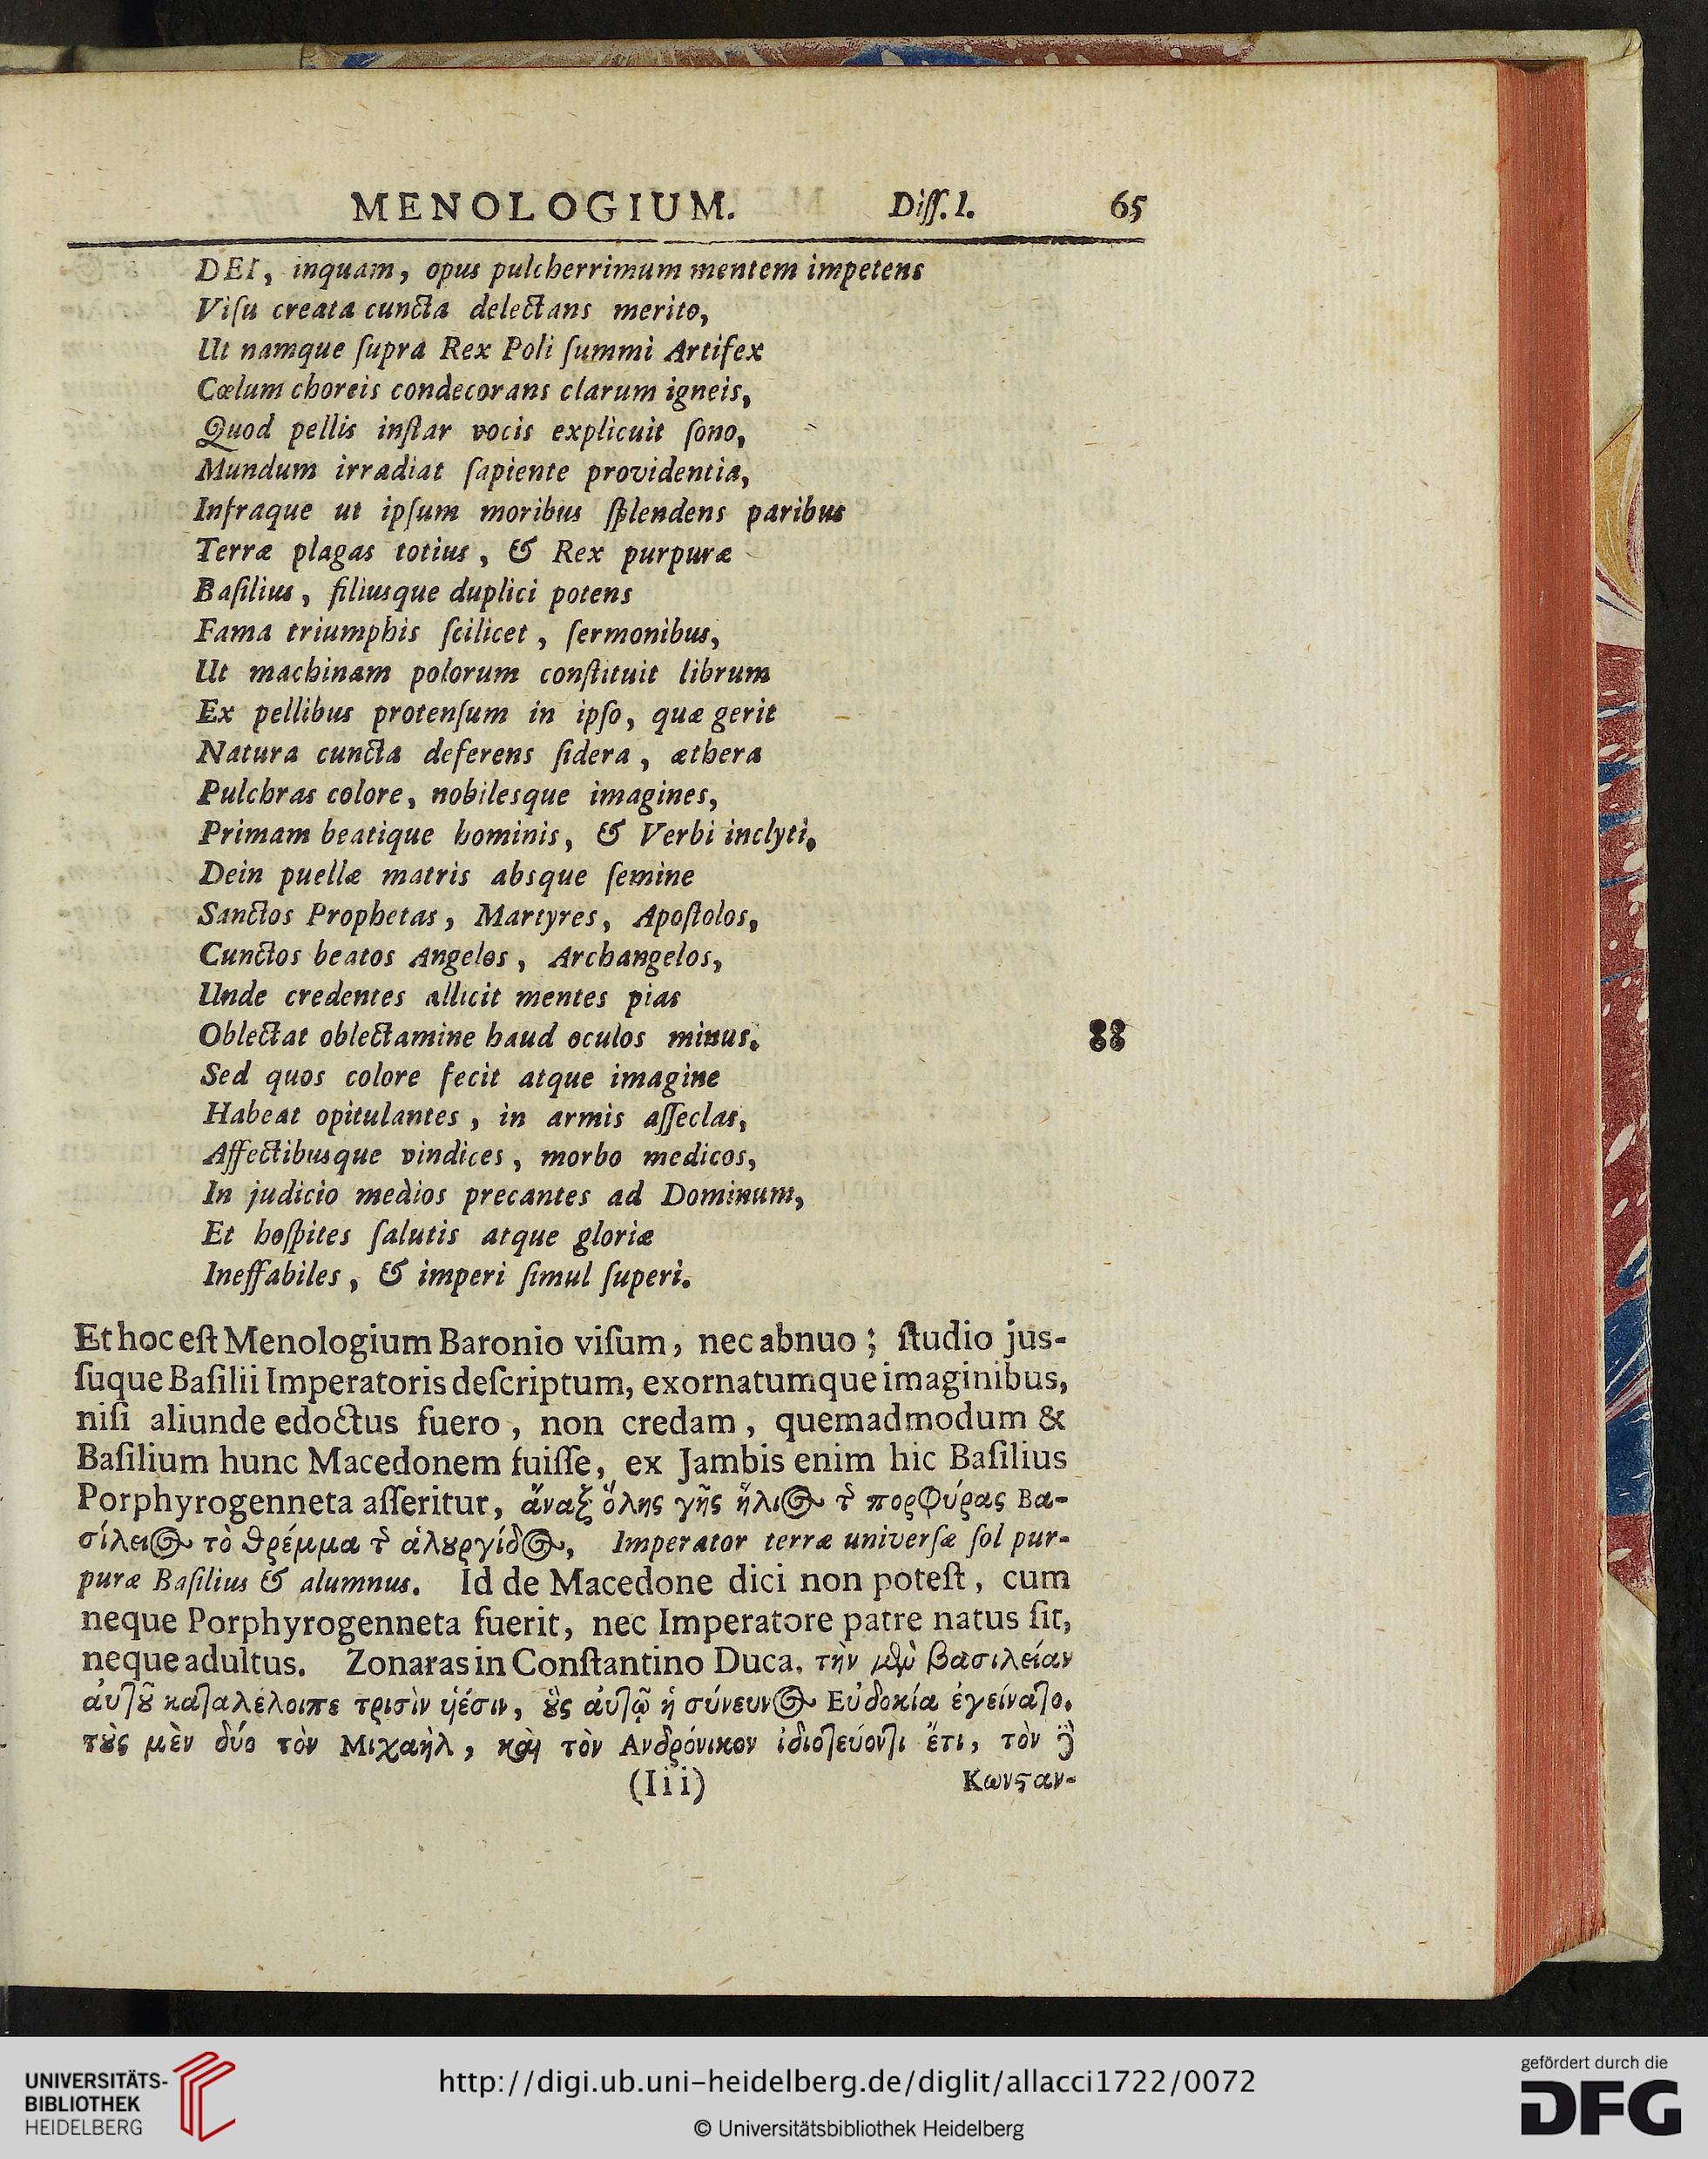 MENOLOGIUM. Diſſ. I. 65
DEI, inquam, opus pulcherrimum mentem impetens
Viſu creata cuncta delectans merito,
Ut namque ſupra Rex Poli ſummi Artifex
Cœlum choreis condecorans clarum igneis,
Quod pellis inſtar vocis explicuit ſono,
Mundum irradiat ſapiente providentia,
Infraque ut ipſum moribus ſplendens paribus
Terræ plagas totius, & Rex purpuræ
Baſilius, filiusque duplici potens
Fama triumphis ſcilicet, ſermonibus,
Ut machinam polorum conſtituit librum
Ex pellibus protenſum in ipſo, quæ gerit
Natura cuncta deferens ſidera, æthera
Pulchras colore, nobilesque imagines,
Primam beatique hominis, & Verbi inclyti,
Dein puellæ matris absque ſemine
Sanctos Prophetas, Martyres, Apoſtolos,
Cunctos beatos Angelos, Archangelos,
Unde credentes allicit mentes pias
Oblectat oblectamine haud oculos minus.
Sed quos colore fecit atque imagine
Habeat opitulantes, in armis aſſeclas,
Affectibusque vindices, morbo medicos,
In judicio medios precantes ad Dominum,
Et hoſpites ſalutis atque gloriæ
Ineffabiles, & imperi ſimul ſuperi.
Et hoc eſt Menologium Baronio viſum, nec abnuo; ſtudio jus-
ſuque Baſilii Imperatoris deſcriptum, exornatumque imaginibus,
niſi aliunde edoctus fuero, non credam, quemadmodum &
Baſilium hunc Macedonem fuiſſe, ex Jambis enim hic Baſilius
Porphyrogenneta aſſeritur, ἄναξ ὅλης γῆς ἥλιος τῆς πορφύρας Βα-
σίλειος τὸ θρέμμα τῆς ἁλουργίδος, Imperator terræ univerſæ ſol pur-
puræ Baſilius & alumnus. Id de Macedone dici non poteſt, cum
neque Porphyrogenneta fuerit, nec Imperatore patre natus ſit,
neque adultus. Zonaras in Conſtantino Duca. τὴν μὲν βασιλείαν
αὐτοῦ καταλέλοιπε τρισὶν ὑέσιν, οὓς αὐτῷ ἡ σύνευνος Εὐδοκία ἐγείνατο.
τοὺς μὲν δύο τὸν Μιχαὴλ, καὶ τὸν Ανδρόνικον ἰδιοτεύοντι ἔτι, τὸν δὲ
(Iii) Κωνςαν-
UNIVERSITÄTS-
BIBLIOTHEK
HEIDELBERG
http://digi.ub.uni-heidelberg.de/diglit/allacci1722/0072
© Universitätsbibliothek Heidelberg
gefördert durch die
DFG